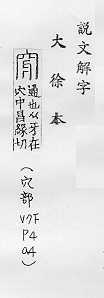 說文解字
大徐本
穿
通也从牙在
穴中昌緣切
(穴部V7下P404)